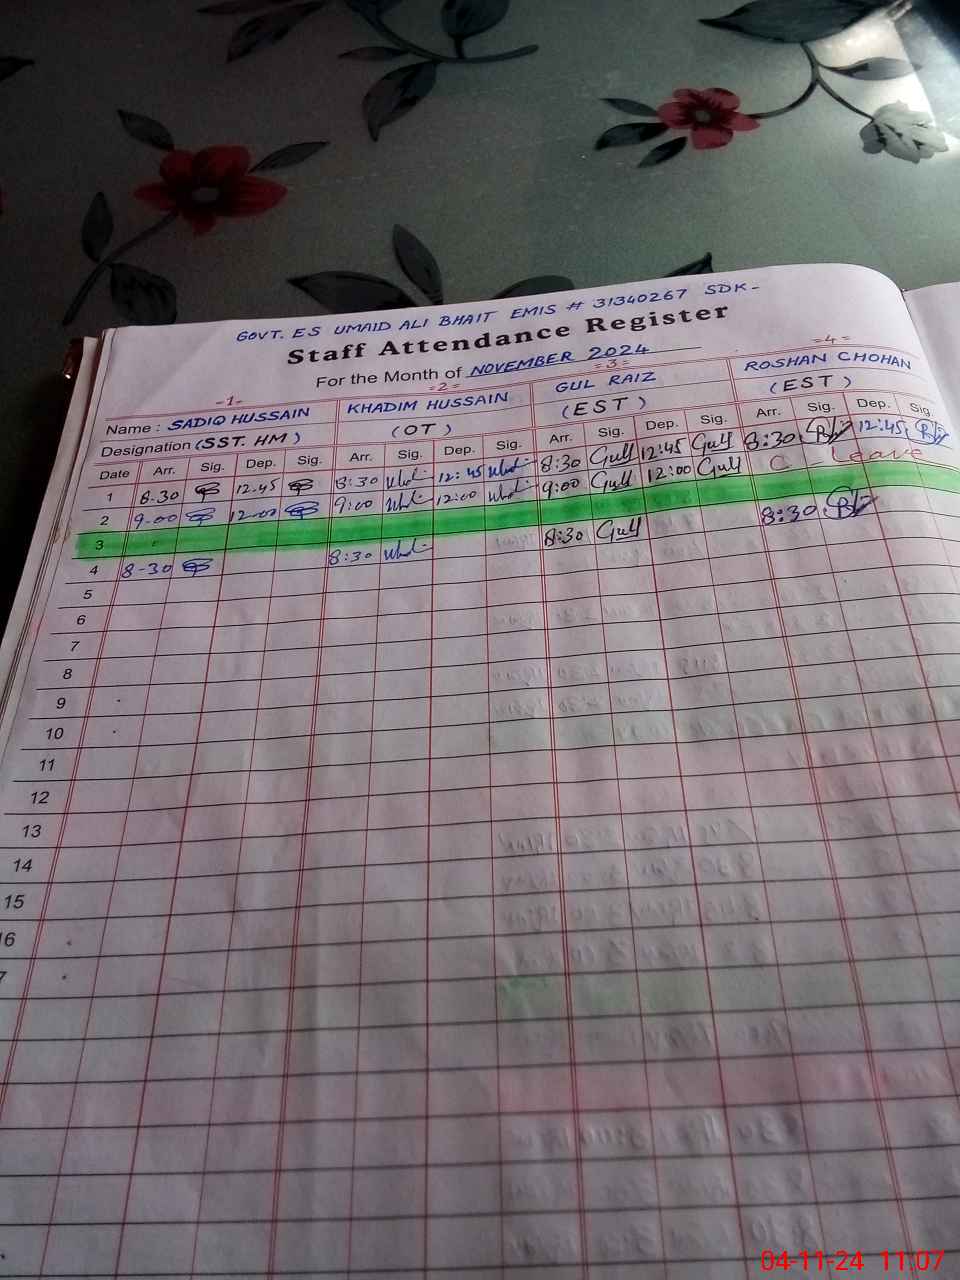 GOVT. ES UMAID ALI BHAIT EMIS # 31340267 SDK-
Staff Attendance Register
For the Month of NOVEMBER 2024
-1- =2= =3= =4=
Name : SADIQ HUSSAIN KHADIM HUSSAIN GUL RAIZ ROSHAN CHOHAN
Designation (SST. HM) (OT) (EST) (EST)
Date Arr. Sig. Dep. Sig. Arr. Sig. Dep. Sig. Arr. Sig. Dep. Sig. Arr. Sig. Dep. Sig.
1 8.30 12.45 8:30 12:45 8:30 Gull 12:45 Gull 8:30 12:45
2 9-00 12-00 9:00 12:00 9:00 Gull 12:00 Gull C - Leave
3
4 8-30 8:30 8:30 Gull 8:30
5
6
7
8
9
10
11
12
13
14
15
16
7
04-11-24 11:07